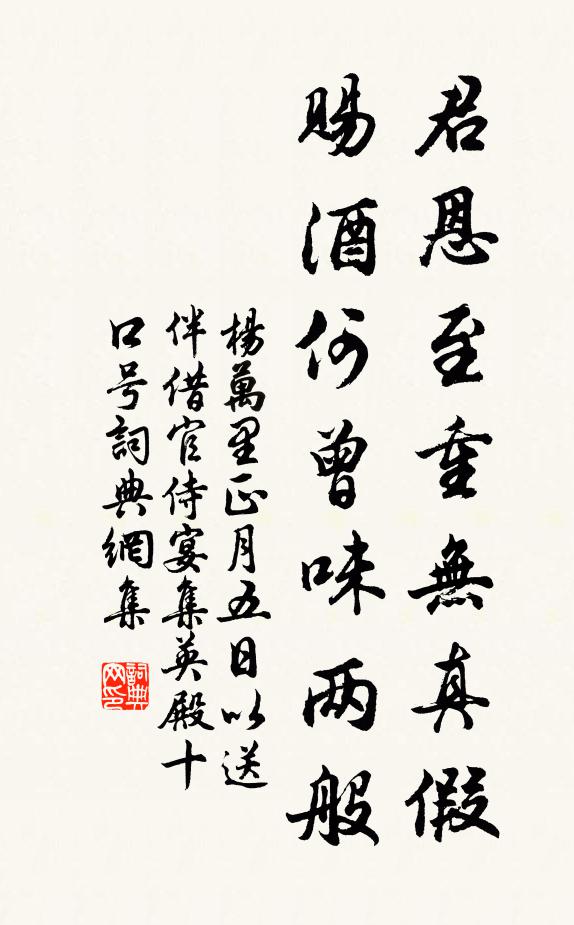 君恩至重無真假
賜酒何曾味两般
楊萬里正月五日以送
伴借官侍宴集英殿十
口号詞典網集
詞典网印